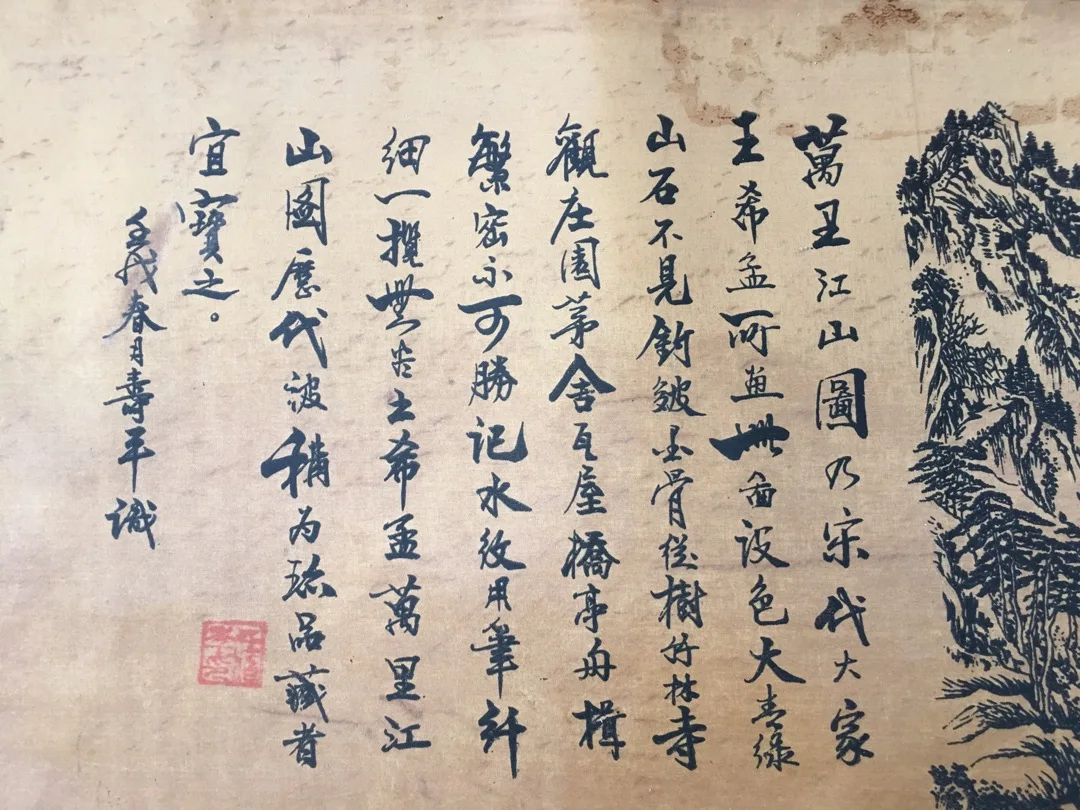 萬里江山圖乃宋代大家
王希孟所畫此圖設色大青綠
山石不見斫皴金骨從樹竹林寺
觀庄園茅舍瓦屋橋亭舟楫
繁密不可勝記水紋用筆纤
细一攬無出王希孟萬里江
山图歷代被稱为珍品藏者
宜寶之。
壬戌春月壽平識